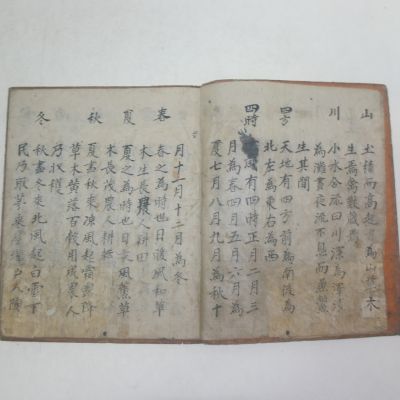 山 土積而高起為山草木
生焉禽獸蕃焉
川 小水合流曰川深為淺
為灘晝夜流不息而魚鱉
生其間
四方 天地有四方前為南後為
北左為東右為西
四時 有四時正月二月三
月為春四月五月六月為
夏七月八月九月為秋十
月十一月十二月為冬
春 春之為時也日暖風和草
木生長農人耕田
夏 夏之為時也日炎風薰草
木長茂農人耕耘
秋 夏盡秋來凉風起霜露降
草木黃落百穀用成農人
乃收穫
冬 秋盡冬來北風起白雲下
民乃取草戶人